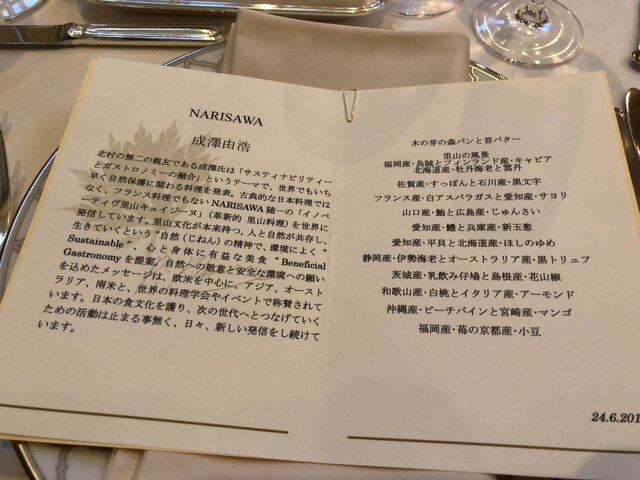 NARISAWA
成澤由浩
北村の無二の親友である成澤氏は「サスティナビリティー
とガストロノミーの融合」というテーマで、世界でもいち
早く自然保護に関わる料理を発表。古典的な日本料理では
なく、フランス料理でもないNARISAWA随一の「イノベ
ーティヴ里山キュイジーヌ」(革新的 里山料理)を世界に
発信しています。里山文化が本来持つ、人と自然が共存し、
生きていくという"自然(じねん)の精神で、環境によく"
Sustainable"、心と身体に有益な美食"Beneficial
Gastronomyを提案。自然への敬意と安全な環境への願い
を込めたメッセージは、欧米を中心に、アジア、オースト
ラリア、南米と、世界の料理学会やイベントで称賛されて
います。日本の食文化を護り、次の世代へとつなげていく
ための活動は止まる事無く、日々、新しい発信をし続けて
います。
木の芽の森パンと苔バター
里山の風景
福岡産・烏賊とフィンランド産・キャビア
北海道産・牡丹海老と雲丹
佐賀産・すっぽんと石川産・黒文字
フランス産・白アスパラガスと愛知産・サヨリ
山口産・鮑と広島産・じゅんさい
愛知産・鱧と兵庫産・新玉葱
愛知産・平貝と北海道産・ほしのゆめ
静岡産・伊勢海老とオーストラリア産・黒トリュフ
茨城産・乳飲み仔鳩と島根産・花山椒
和歌山産・白桃とイタリア産・アーモンド
沖縄産・ピーチパインと宮崎産・マンゴ
福岡産・苺の京都産・小豆
24.6.201